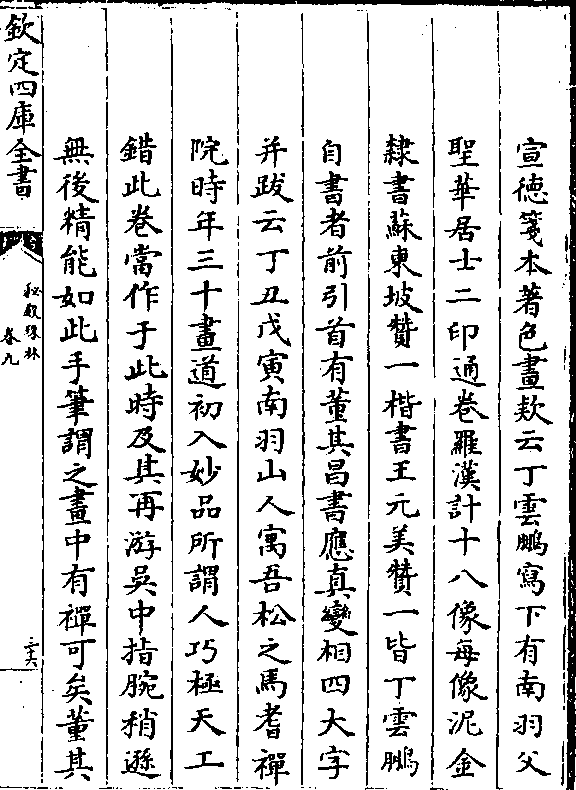 宣德箋本著色畫欵云丁雲鵬寫下有南羽父
聖華居士二印通卷羅漢計十八像每像泥金
隸書蘇東坡贊一楷書王元美贊一皆丁雲鵬
自書者前引首有董其昌書應真變相四大字
并跋云丁丑戊寅南羽山人寓吾松之馬耆禪
院時年三十畫道初入妙品所謂人巧極天工
錯此卷當作于此時及其再游吳中指腕稍遜
無後精能如此手筆謂之畫中有禪可矣董其
欽定四庫全書
秘殿珠林
卷九
三六